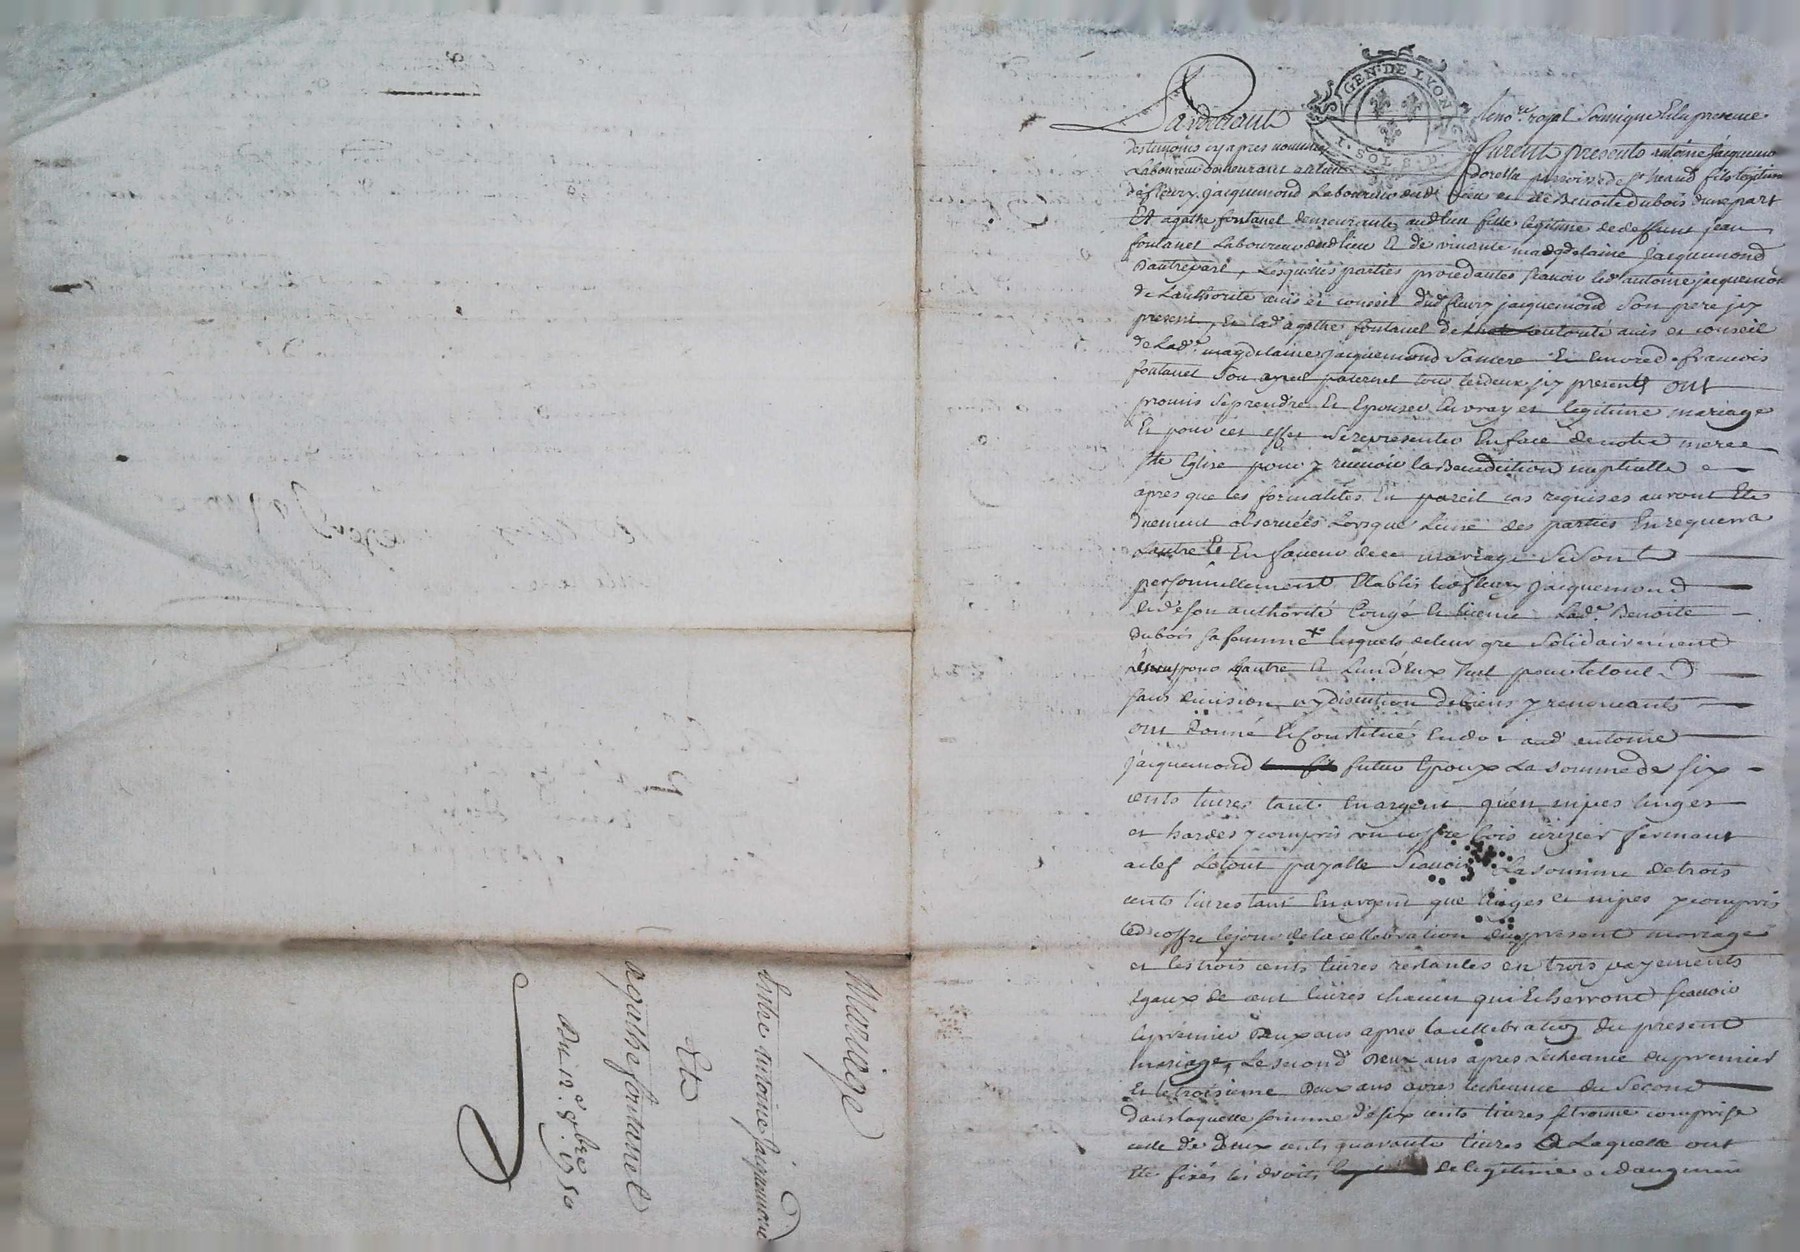 GEN. DE LYON
I. SOL 8. D.
Pardevant le no.re royal soussigné Et la presence
des temoins cy apres nommés furent presents antoine Jacquemond
Laboureur demeurant au lieu dorella parroisse de st haond fils legitime
de fleury Jacquemond Laboureur aud lieu et de Benoite dubois d'une part
Et agathe fontanel demeurante aud lieu fille legitime de deffunt jean
fontanel Laboureur aud lieu Et de vivante magdelaine Jacquemond
D'autre part, Lesquelles parties procedantes scavoir led antoine jacquemond
de L'authorité avis et conseil dud fleury jacquemond son pere jcy
present, Et lad agathe fontanel de autorité avis et conseil
de Lad.e magdelaine jacquemond sa mere Et encore de francois
fontanel son ayeul paternel tous les deux jcy presents ont
promis se prendre Et Epouser En vray et legitime mariage
Et pour cet effet se representer En face de notre mere
ste Eglise pour y recevoir la Benediction nuptialle
apres que les formalités En pareil cas requises auront Eté
duement observées Lorsque L'une des parties En requerra
L'autre Et En faveur de ce mariage se sont
personnellement Etablis led fleury Jacquemond
Et de son authorité Congé Et licence Lad.e Benoite
dubois sa femme + lesquels de leur gré solidairement
L'un pour L'autre Et L'un d'Eux seul pour le tout
sans division ny discution de biens y renoncants
ont donné Et Constitué En dot aud antoine
jacquemond futur Epoux La somme de six
cents livres tant En argent qu'en nipes linges
et hardes y compris un coffre bois cerizier fermant
a clef Le tout payable Scavoir La somme de trois
cents livres tant En argent que linges et nipes y compris
led coffre le jour de la cellebration du present mariage
et les trois cents livres restantes en trois payements
Egaux de cent livres chacun qui Echerront scavoir
le premier Deux ans apres la cellebration du present
mariage, Le second Deux ans apres L'echeance du premier
Et le troisieme Deux ans apres L'echeance du second
Dans laquelle somme de six cents livres se trouve comprise
celle de Deux cents quarante livres a Laquelle ont
Eté fixés les droits de legitime et d'augment
Mariage
Entre antoine Jacquemond
Et
agathe fontanel
Du 12.e 9bre 1780